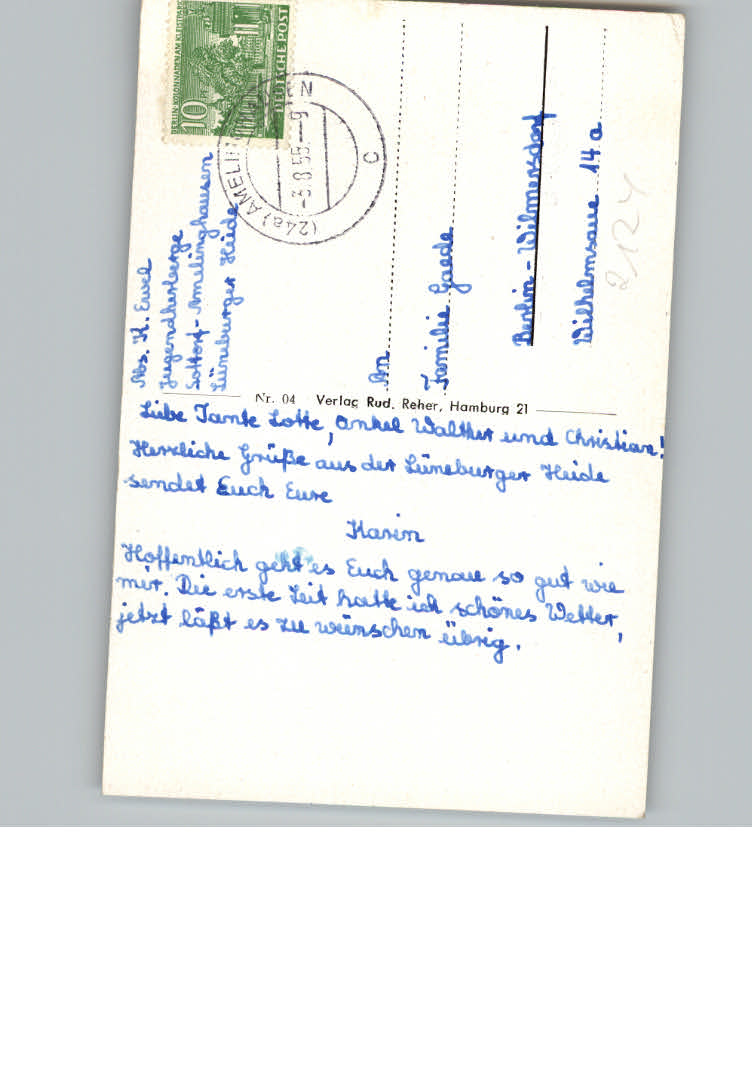 BERLIN-KOLONNADEN AM KLEISTPARK
10 PF
DEUTSCHE POST
(24a) AMELIN
-3.8.55.--9
c
Abs. K. Ewel
Jugendherberge
Sottorf-Amelinghausen
Lüneburger Heide
An
Familie Gaede
Berlin-Wilmersdorf
Wilhelmsaue 14a
2124
Nr. 04 Verlag Rud. Reher, Hamburg 21
Liebe Tante Lotte, Onkel Walther und Christiane!
Herzliche Grüße aus der Lüneburger Heide
sendet Euch Eure
Karin
Hoffentlich geht es Euch genau so gut wie
mir. Die erste Zeit hatte ich schönes Wetter,
jetzt läßt es zu wünschen übrig.